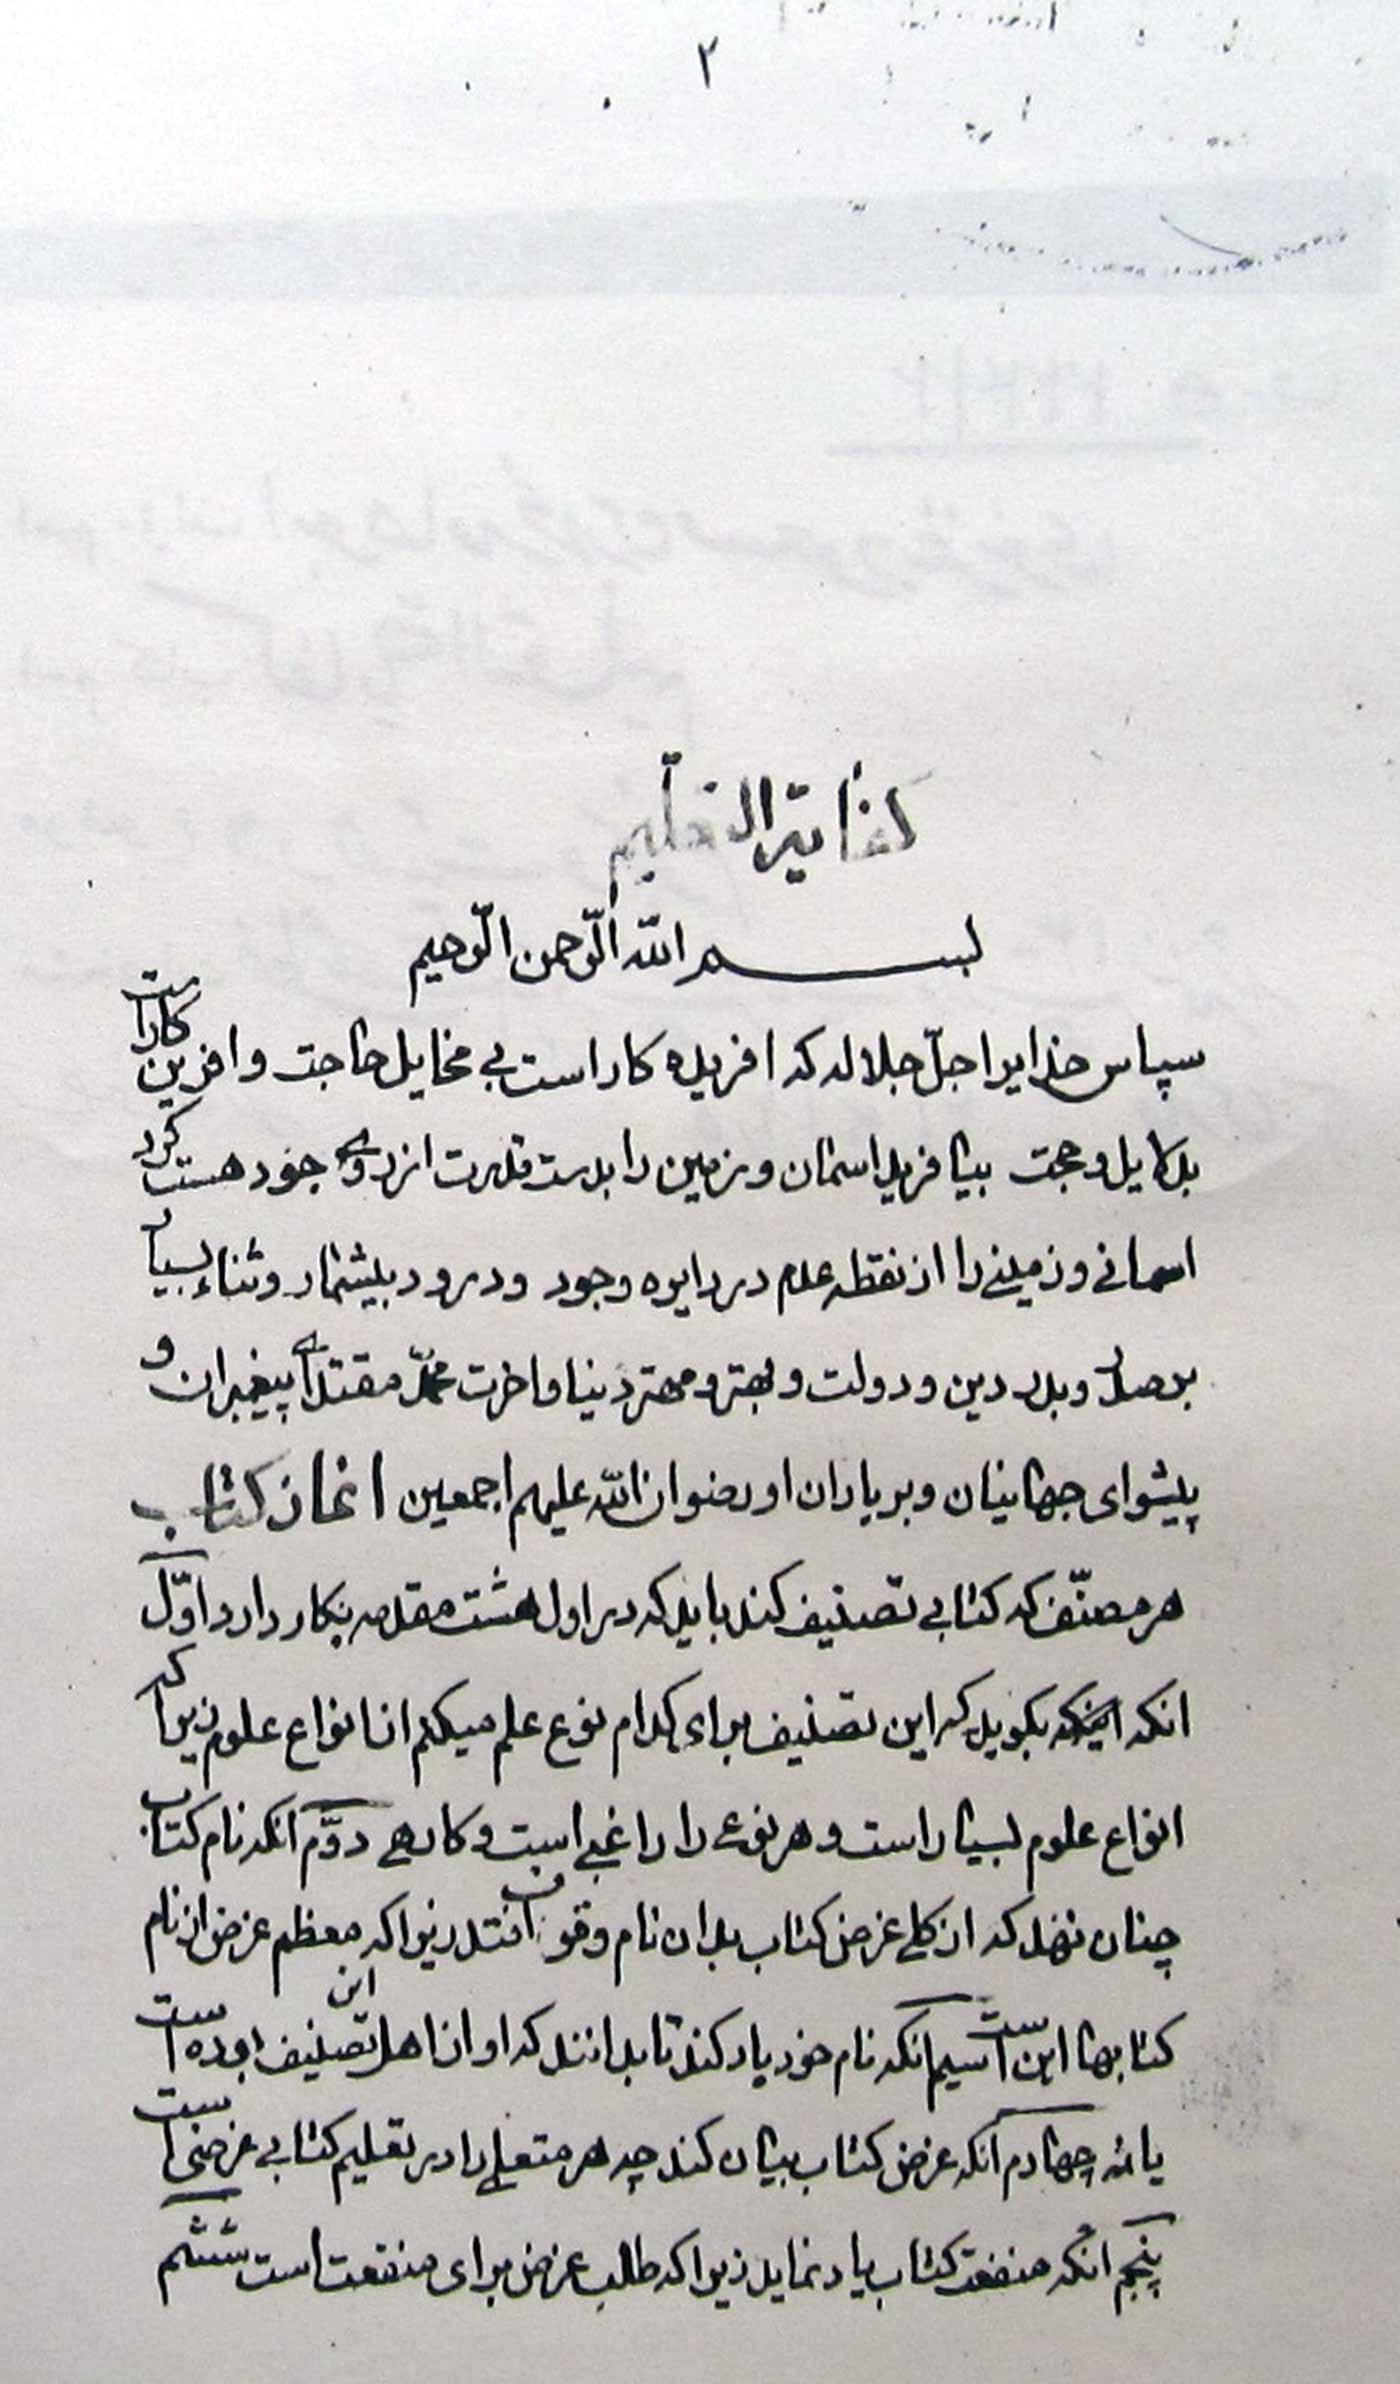 ۲
کفایة التعلیم
بسم الله الرحمن الرحیم
سپاس خدایرا جلّ جلاله که افریده کار است بی مخایل حاجت و افرین کار است
بدلایل و حجت بیافرید اسمان و زمین را بدست قدرت از روی جود هست کرد
اسمانی و زمینی را از نقطه عدم در دایره وجود و درود بیشمار و ثناء بسیار
بر صدر و بدر دین و دولت و بهتر و مهتر دنیا و اخرت محمّد مقتدای پیغبران و
پیشوای جهانیان و بر یاران او رضوان الله علیهم اجمعین اغاز کتاب
هر مصنّف که کتابی تصنیف کند باید که در اول هشت مقدمه بکار دارد اوّل
انکه بکوید که این تصنیف براء کدام نوع علم میکنم از انواع علوم زیرا که
انواع علوم بسیار است و هر نوعی را راغبی است و کارهی دوّم انکه نام کتاب
چنان نهد که از کلی غرض کتاب بدان نام وقوف افتد زیرا که معظم غرض از نام
کتابها این است سیم انکه نام خود یاد کند تا بدانند که او از اهل این تصنیف بوده است
یا نه چهارم انکه غرض کتاب بیان کند چه هر متعلمی را در تعلیم کتابی غرضی است
پنجم انکه منفعت کتاب یاد نماید زیرا که طلب غرض برای منفعت است ششم